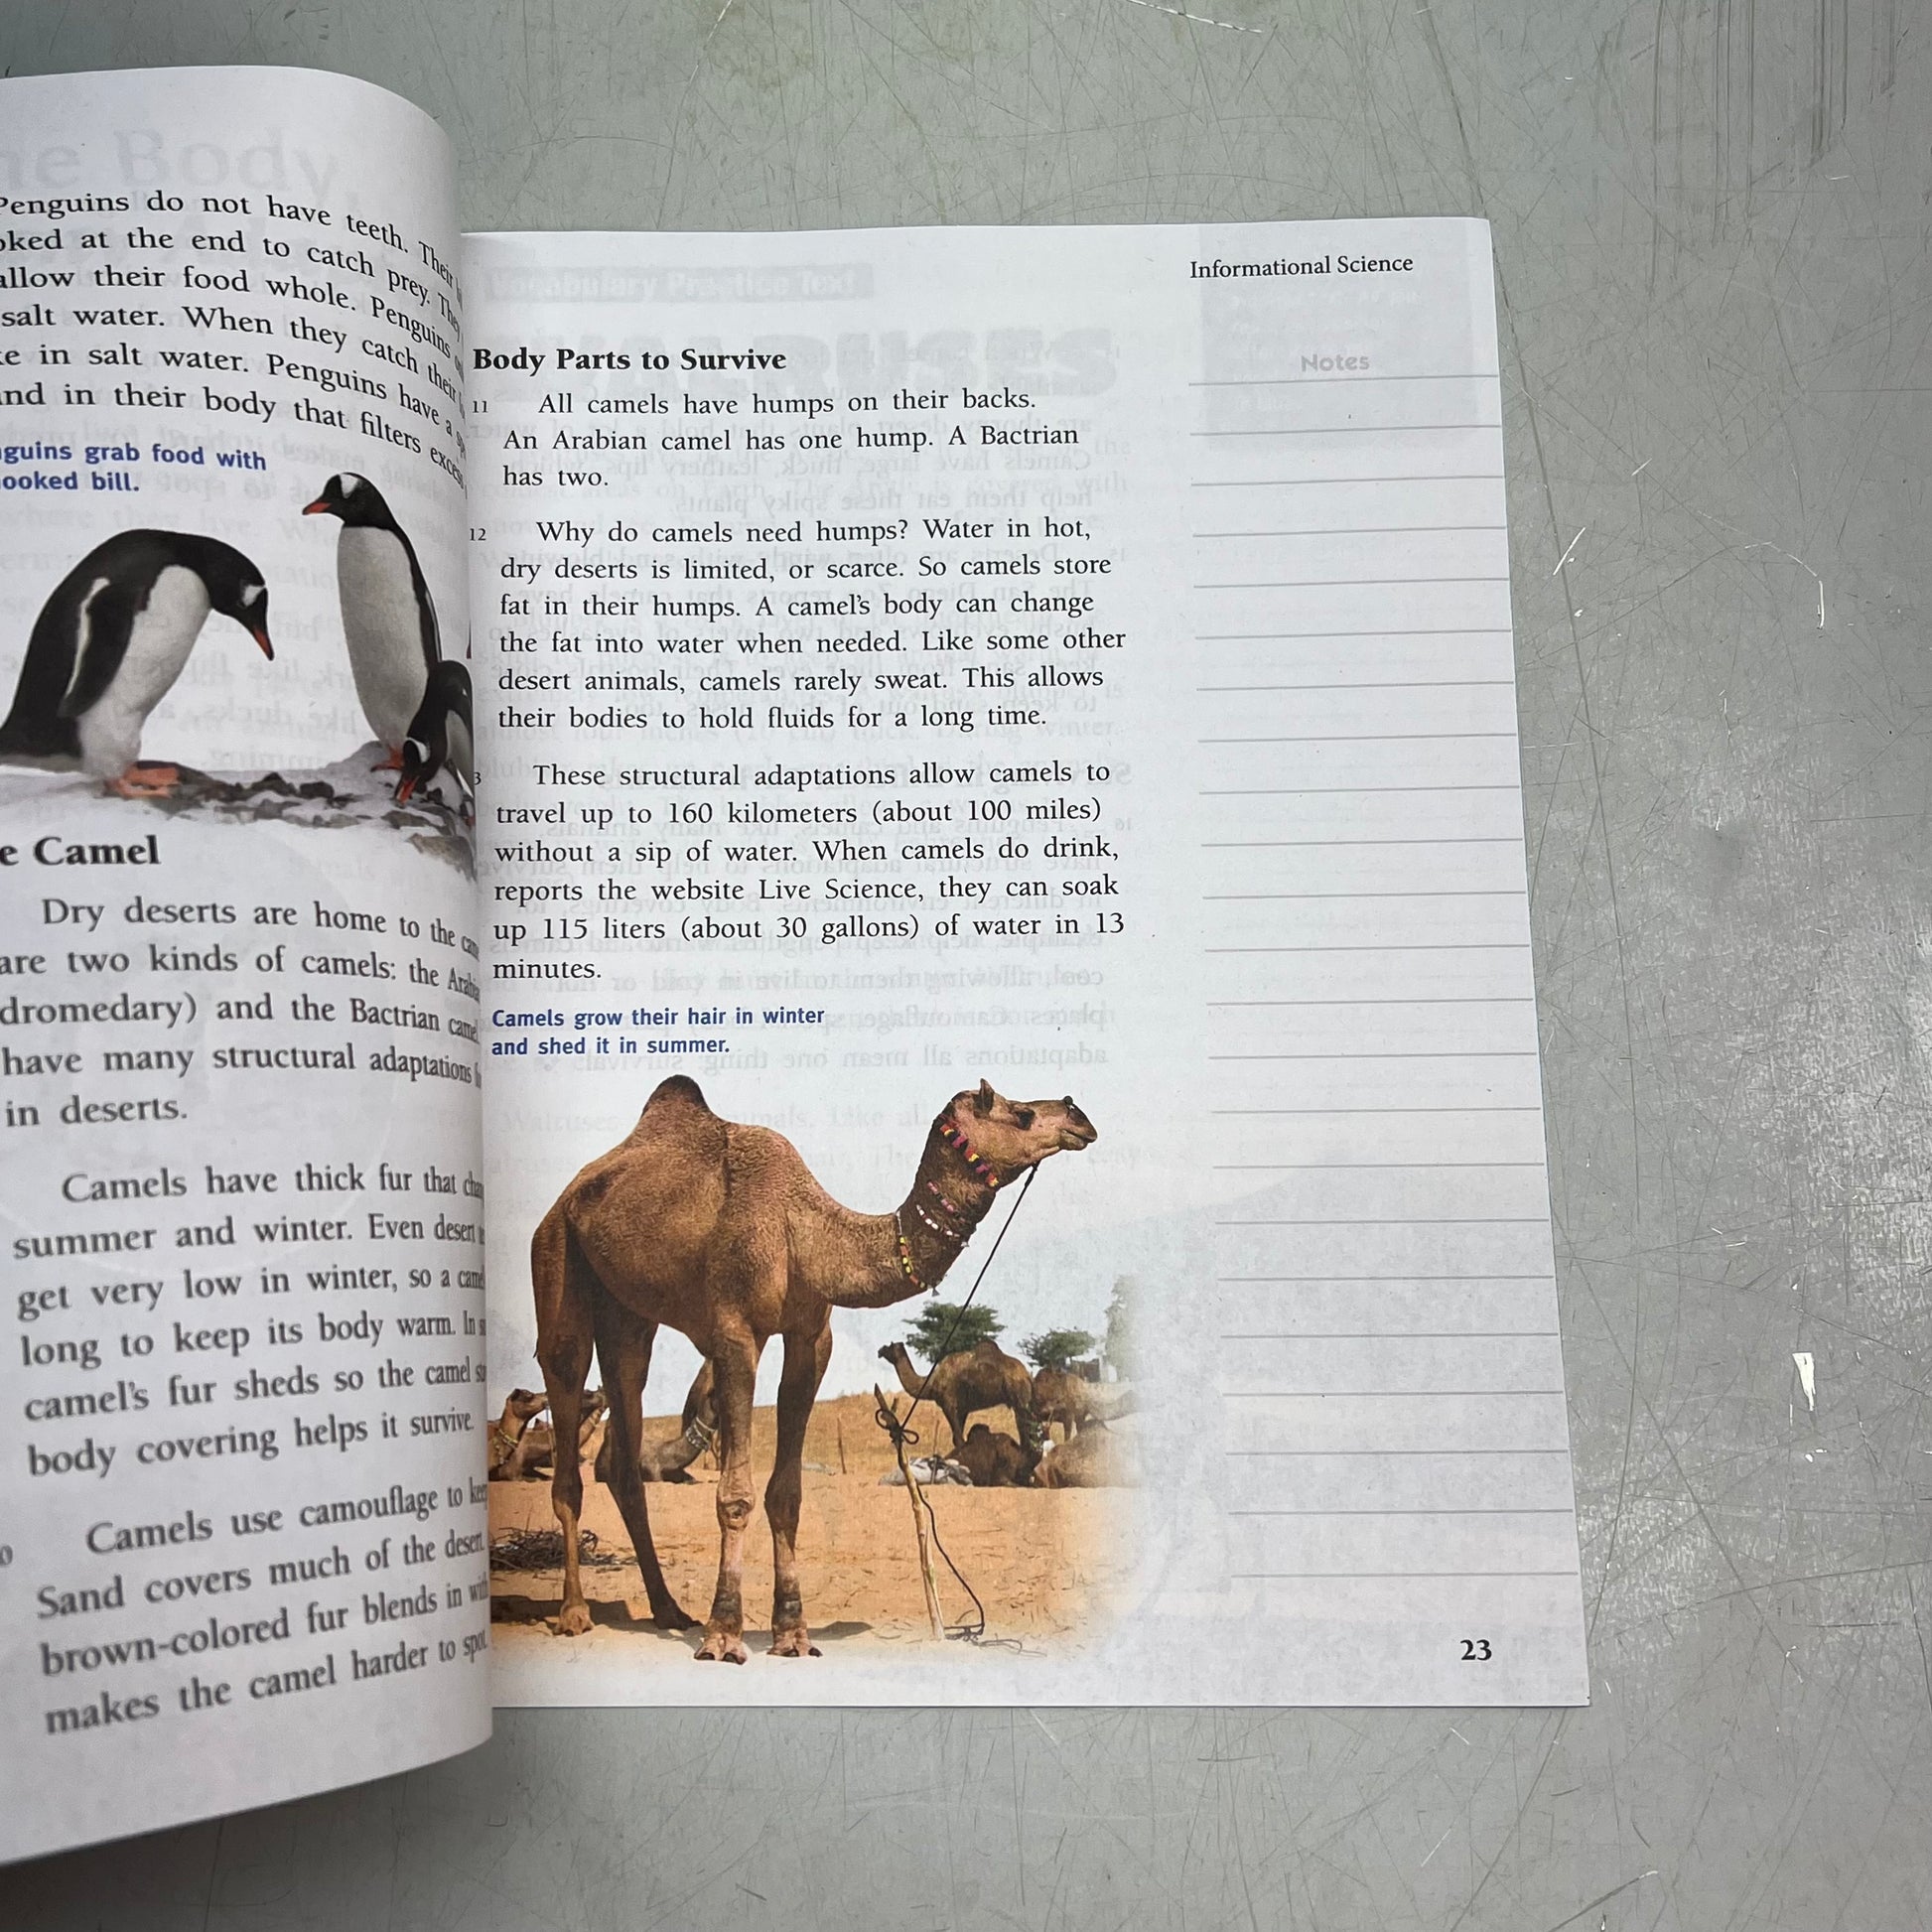 Penguins do not have teeth. Their
at the end to catch prey. They
their food whole. Penguins
salt water. When they catch their
in salt water. Penguins have a
in their body that filters
grab food with
bill.
Camel
Dry deserts are home to the
are two kinds of camels: the
dromedary) and the Bactrian
have many structural adaptations
in deserts.
Camels have thick fur that
summer and winter. Even desert
get very low in winter, so a
long to keep its body warm. In
camel's fur sheds so the camel
body covering helps it survive.
Camels use camouflage to
Sand covers much of the desert.
brown-colored fur blends in
makes the camel harder to
Informational Science
Notes
Body Parts to Survive
11 All camels have humps on their backs.
An Arabian camel has one hump. A Bactrian
has two.
12 Why do camels need humps? Water in hot,
dry deserts is limited, or scarce. So camels store
fat in their humps. A camel's body can change
the fat into water when needed. Like some other
desert animals, camels rarely sweat. This allows
their bodies to hold fluids for a long time.
3 These structural adaptations allow camels to
travel up to 160 kilometers (about 100 miles)
without a sip of water. When camels do drink,
reports the website Live Science, they can soak
up 115 liters (about 30 gallons) of water in 13
minutes.
Camels grow their hair in winter
and shed it in summer.
23